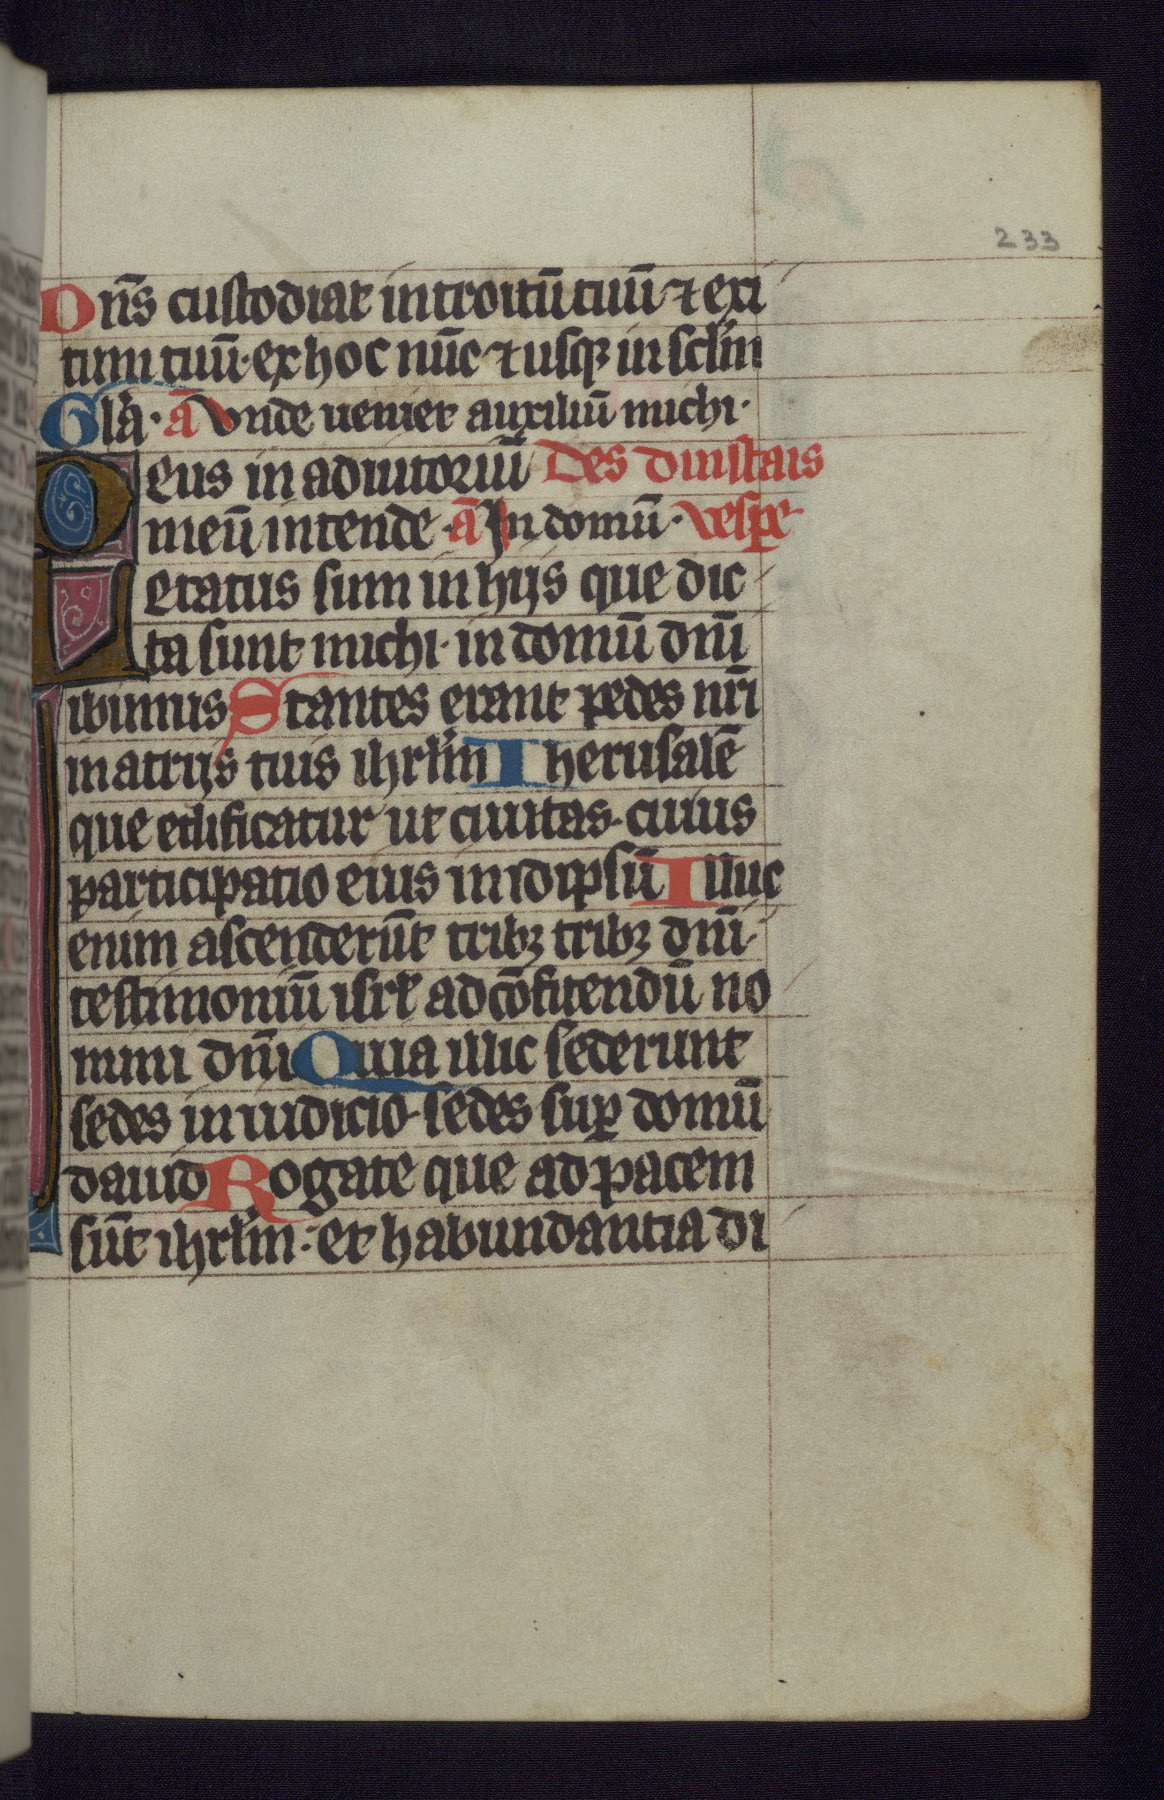 233
Dn̄s custodiat introitū tuū ⁊ exi
tum tuū· ex hoc nūc ⁊ usqꝫ in sclm̄
Glā· ā Vnde ueniet auxiliū michi·
Deus in adiutoriū Des diuistais
meū intende· ā In domū· vespe·
Letatus sum in hijs que dic
ta sunt michi· in domū dn̄i
ibimus Stantes erant pedes nr̄i
in atrijs tuis ihrlm̄ Iherusalē
que edificatur ut ciuitas· cuius
participatio eius in idipsū Illuc
enim ascenderūt tribꝫ tribꝫ dn̄i·
testimoniū isrl̄ ad cōfitendū no
mini dn̄i Quia illic sederunt
sedes in iudicio· sedes suꝑ domū
dauid Rogate que ad pacem
sūt ihrlm̄: et habundantia di